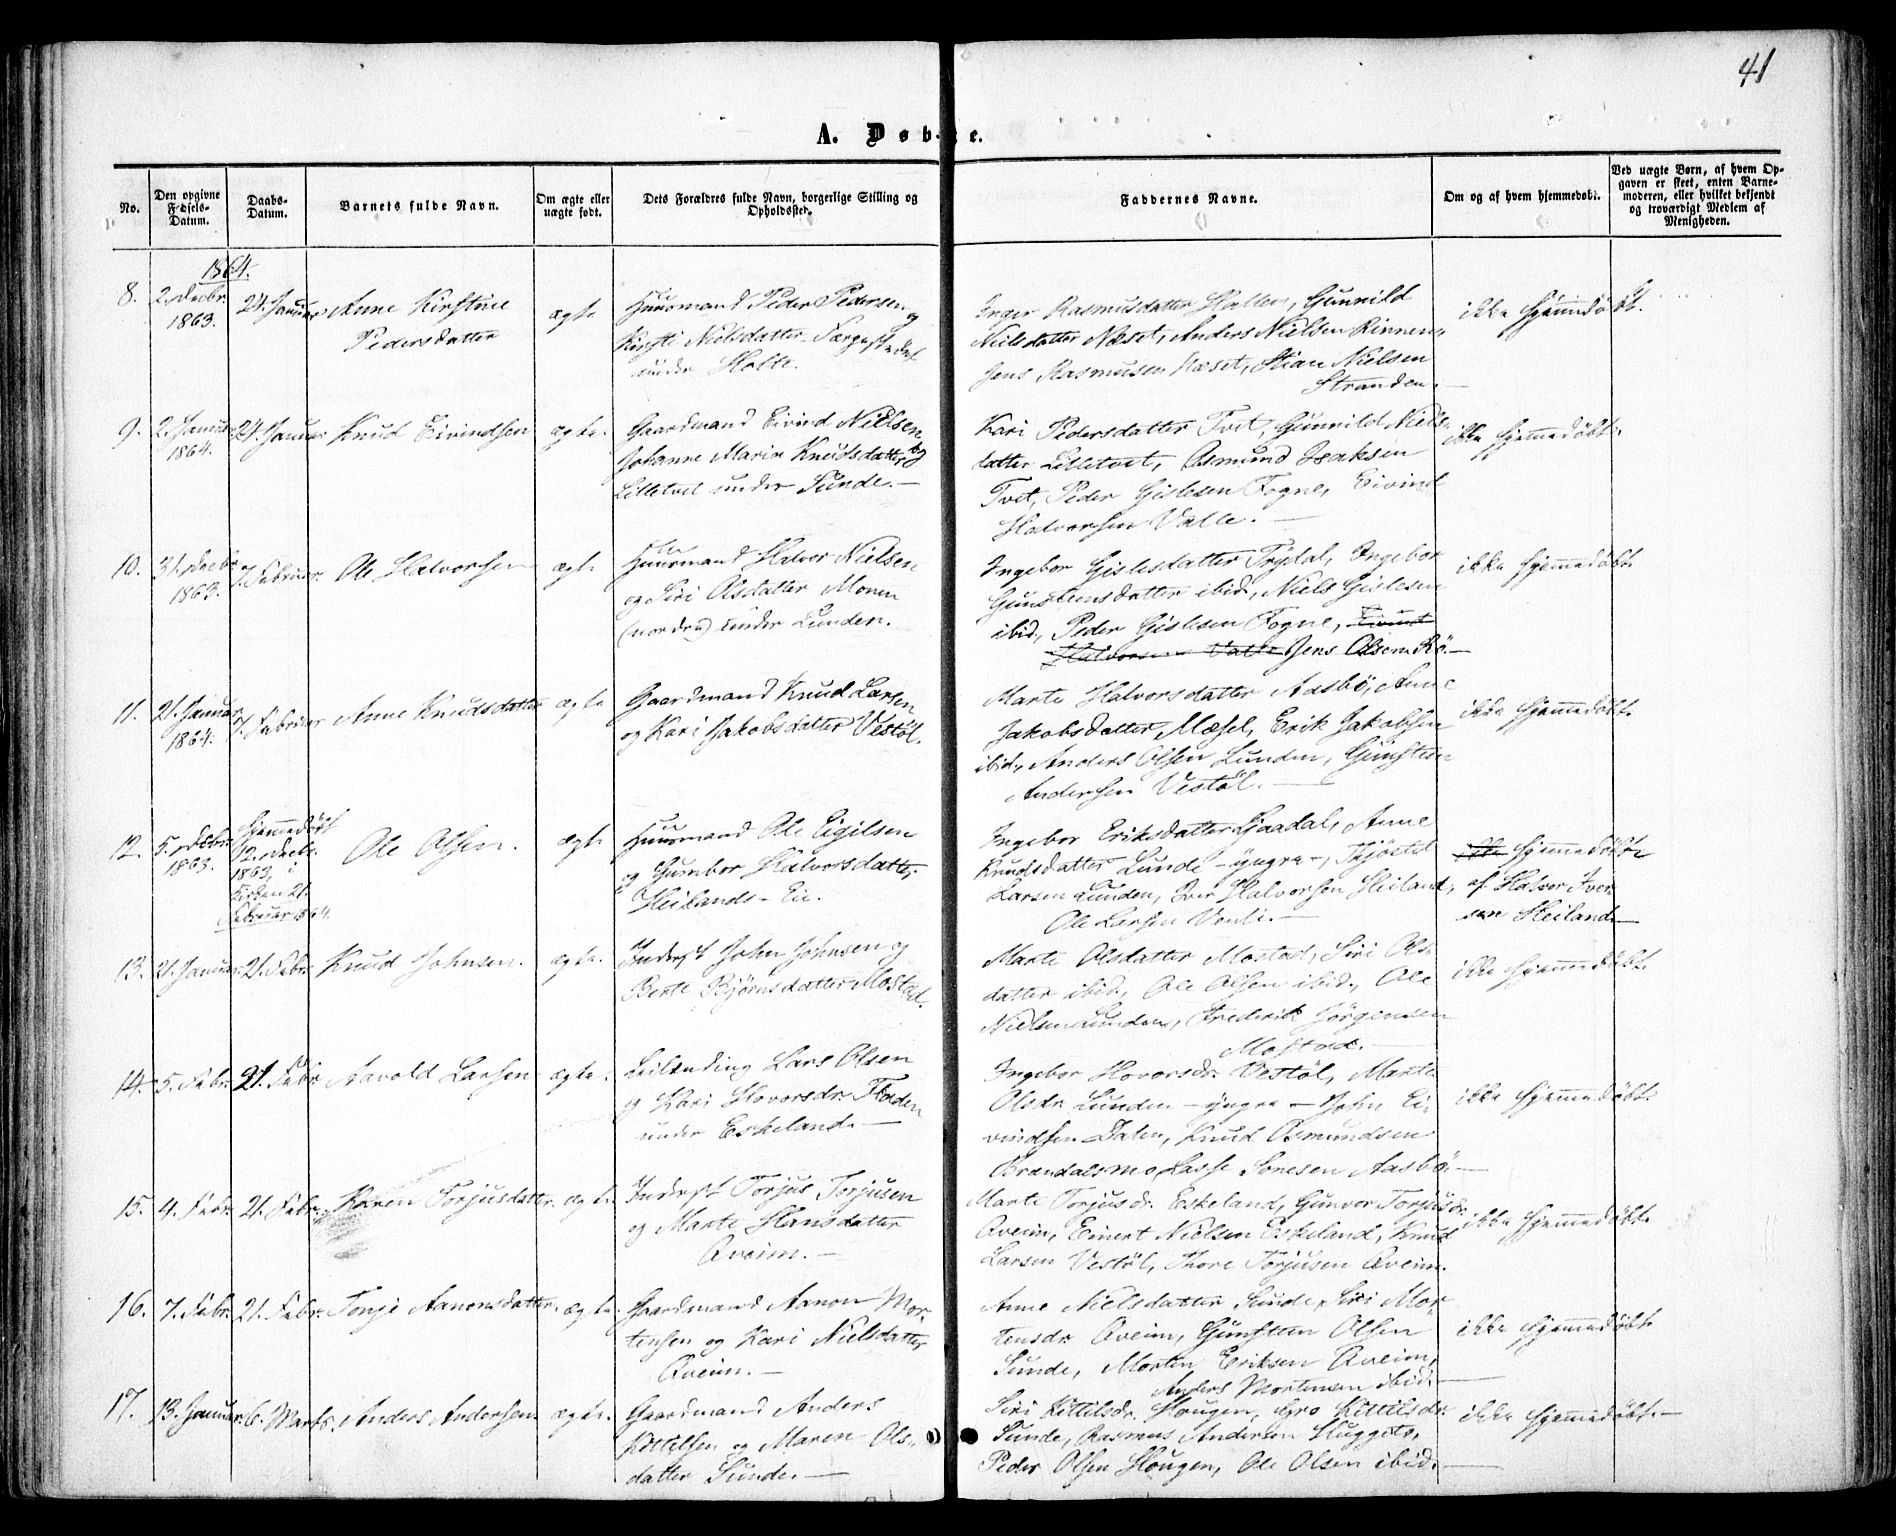 41
A. Døbte.
No.
Den opgivne Fødsels-Datum.
Daabs-Datum.
Barnets fulde Navn.
Om ægte eller uægte født.
Dets Forældres fulde Navn, borgerlige Stilling og Opholdssted.
Faddernes Navne.
Om og af hvem hjemmedøbt.
Ved uægte Børn, af hvem Opgaven er skeet, enten Barnemoderen, eller hvilket bekjendt og troværdigt Medlem af Menigheden.
1864.
8.
2. Decbr.
1863.
24. Januar
Anne Kirstine
Pedersdatter
ægte
Huusmand Peder Pedersen og
Kirsti Nielsdatter Færgestedet
under Holte.
Inger Rasmusdatter Holten, Gunnild
Nielsdatter Næset, Anders Nielsen Rinnen,
Jens Rasmusen Næset, Stian Nielsen
Stranden.
ikke hjemmedøbt.
9.
2. Januar
1864.
24. Januar
Knud Eivindsen
ægte.
Gaardmand Eivind Nielsen og
Johanne Maria Knudsdatter
Lilletvet under Sunde.
Kari Pedersdatter Tvet, Gunnild Niels-
datter Lilletvet, Osmund Isaksen
Tvet, Peder Gislesen Fogne, Eivind
Halvorsen Valle.
ikke hjemmedøbt.
10.
31. Decbr.
1863.
7. Februar.
Ole Halvorsen
ægte
Huusmand Halvor Nielsen
og Siri Olsdatter Monen
(nordre) under Lunden.
Ingebor Gislesdatter Trydal, Ingebor
Gunstensdatter ibid., Niels Gislesen
ibid., Peder Gislesen Fogne, Eivind
Halvorsen Valle Jens Olsen Rö.
ikke hjemmedøbt.
11.
21. Januar
1864.
7. Februar
Anne Knudsdatter
ægte
Gaardmand Knud Larsen
og Kari Jakobsdatter Vestöl.
Marte Halvorsdatter Aasbö, Anne
Jakobsdatter Mæsel, Erik Jakobsen
ibid., Anders Olsen Lunden, Gunsten
Andersen Vestöl.
ikke hjemmedøbt.
12.
5. Decbr.
1863.
Hjemmedøbt
12. Decbr.
1863, i
Kirken 21.
Februar 1864.
Ole Olsen.
ægte
Huusmand Ole Eigilsen
og Gumbor Halvorsdatter
Heilands-Eie.
Ingebor Eriksdatter Gaadal, Anne
Knudsdatter Lunde - yngre -, Thjöstel
Larsen Lunden, Iver Halvorsen Heiland,
Ole Larsen Venli.
ikke hjemmedøbt
af Halvor Iver-
sen Heiland
13.
21. Januar.
21. Febr.
Knud Johnsen.
ægte.
Inderst John Johnsen og
Berte Björnsdatter Mostad.
Marte Olsdatter Mostad, Siri Ols-
datter ibid., Ole Olsen ibid., Ole
Nielsen Lunden, Frederik Jörgensen
Mostad.
ikke hjemmedøbt.
14.
5. Febr.
21. Febr
Aavold Larsen
ægte.
Leilending Lars Olsen
og Kari Hovorsdr. Floden
under Eskeland.
Ingebor Hovorsdr. Vestöl, Marte
Olsdr. Lunden - yngre - John Ei-
vindsen Dalen, Knud Osmundsen
Brændalsmo, Lasse Sonesen Aasbö.
ikke hjemmedøbt.
15.
4. Febr.
21. Febr.
Karen Torjusdatter.
ægte
Inderst Torjus Torjusen
og Marte Hansdatter
Aveim.
Marte Torjusdr. Eskeland, Gunvor Torjusdr.
Aveim, Einert Nielsen Eskeland, Knud
Larsen Vestöl, Thore Torjusen Aveim.
ikke hjemmedøbt.
16.
7. Febr.
21. Febr.
Tonje Aanonsdatter.
ægte.
Gaardmand Aanon Mor-
tensen og Kari Nielsdatter
Aveim.
Anne Nielsdatter Sunde, Siri Mor-
tensdr. Aveim, Gunsten Olsen
Sunde, Morten Eriksen Aveim,
Anders Mortensen ibid.
ikke hjemmedøbt
17.
13. Januar.
6. Marts.
Anders Andersen.
ægte.
Gaardmand Anders
Kittilsen og Maren Ols-
datter Sunde.
Siri Kittilsdr. Hougen, Gro Kittilsdr.
Sunde, Rasmus Andersen Huggeto,
Peder Olsen Hougen, Ole Olsen ibid.
ikke hjemmedøbt.